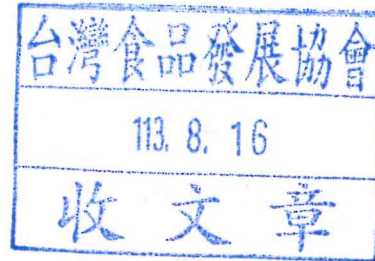 台灣食品發展協會
113. 8. 16
收文章